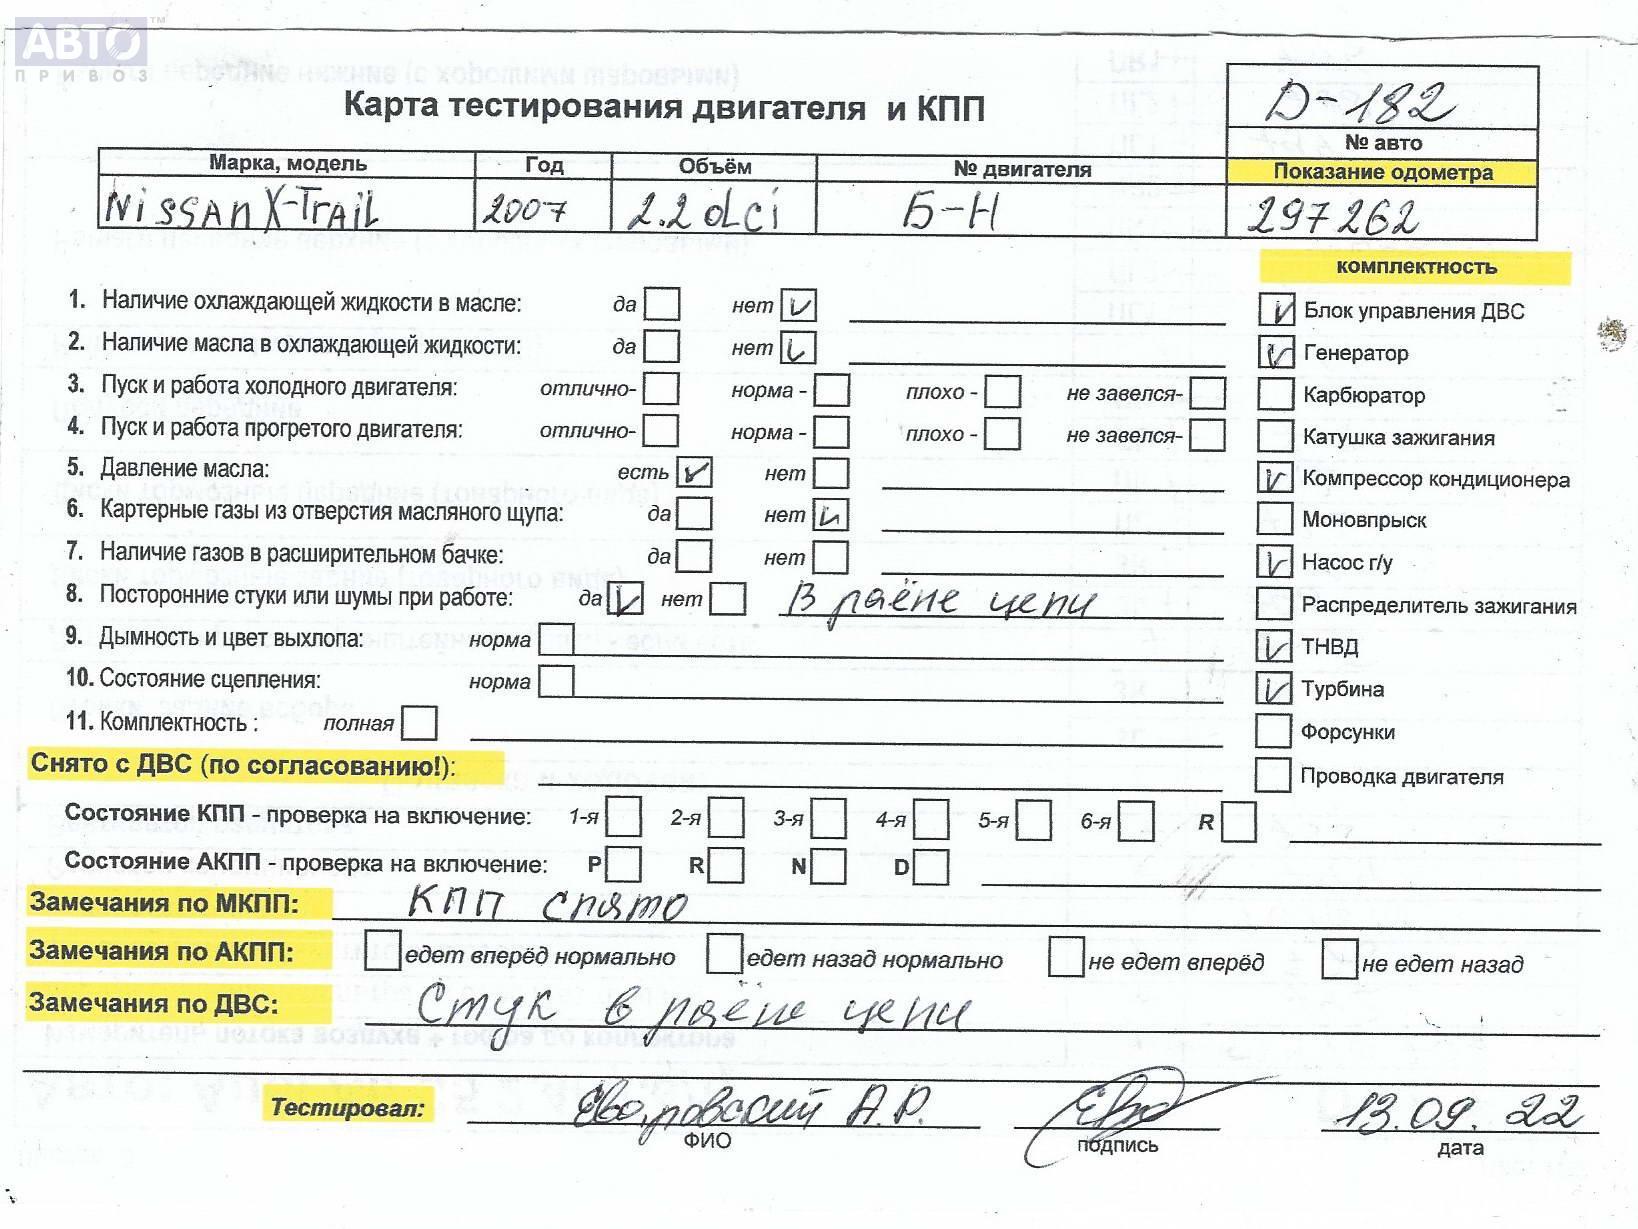 АВТО™
ПРИВОЗ
Карта тестирования двигателя и КПП
D-182
№ авто
Марка, модель Год Объём № двигателя Показание одометра
NISSAN X-TRAIL 2007 2.2 dci Б-Н 297262
комплектность
1. Наличие охлаждающей жидкости в масле: да нет V Блок управления ДВС
2. Наличие масла в охлаждающей жидкости: да нет V Генератор
3. Пуск и работа холодного двигателя: отлично- норма - плохо - не завелся- Карбюратор
4. Пуск и работа прогретого двигателя: отлично- норма - плохо - не завелся- Катушка зажигания
5. Давление масла: есть нет Компрессор кондиционера
6. Картерные газы из отверстия масляного щупа: да нет Моновпрыск
7. Наличие газов в расширительном бачке: да нет Насос г/у
8. Посторонние стуки или шумы при работе: да нет В раёне цепи Распределитель зажигания
9. Дымность и цвет выхлопа: норма ТНВД
10. Состояние сцепления: норма Турбина
11. Комплектность : полная Форсунки
Снято с ДВС (по согласованию!): Проводка двигателя
Состояние КПП - проверка на включение: 1-я 2-я 3-я 4-я 5-я 6-я R
Состояние АКПП - проверка на включение: P R N D
Замечания по МКПП: КПП снято
Замечания по АКПП: едет вперёд нормально едет назад нормально не едет вперёд не едет назад
Замечания по ДВС: Стук в раёне цепи
Тестировал: А.Р. 13.09.22
ФИО подпись дата